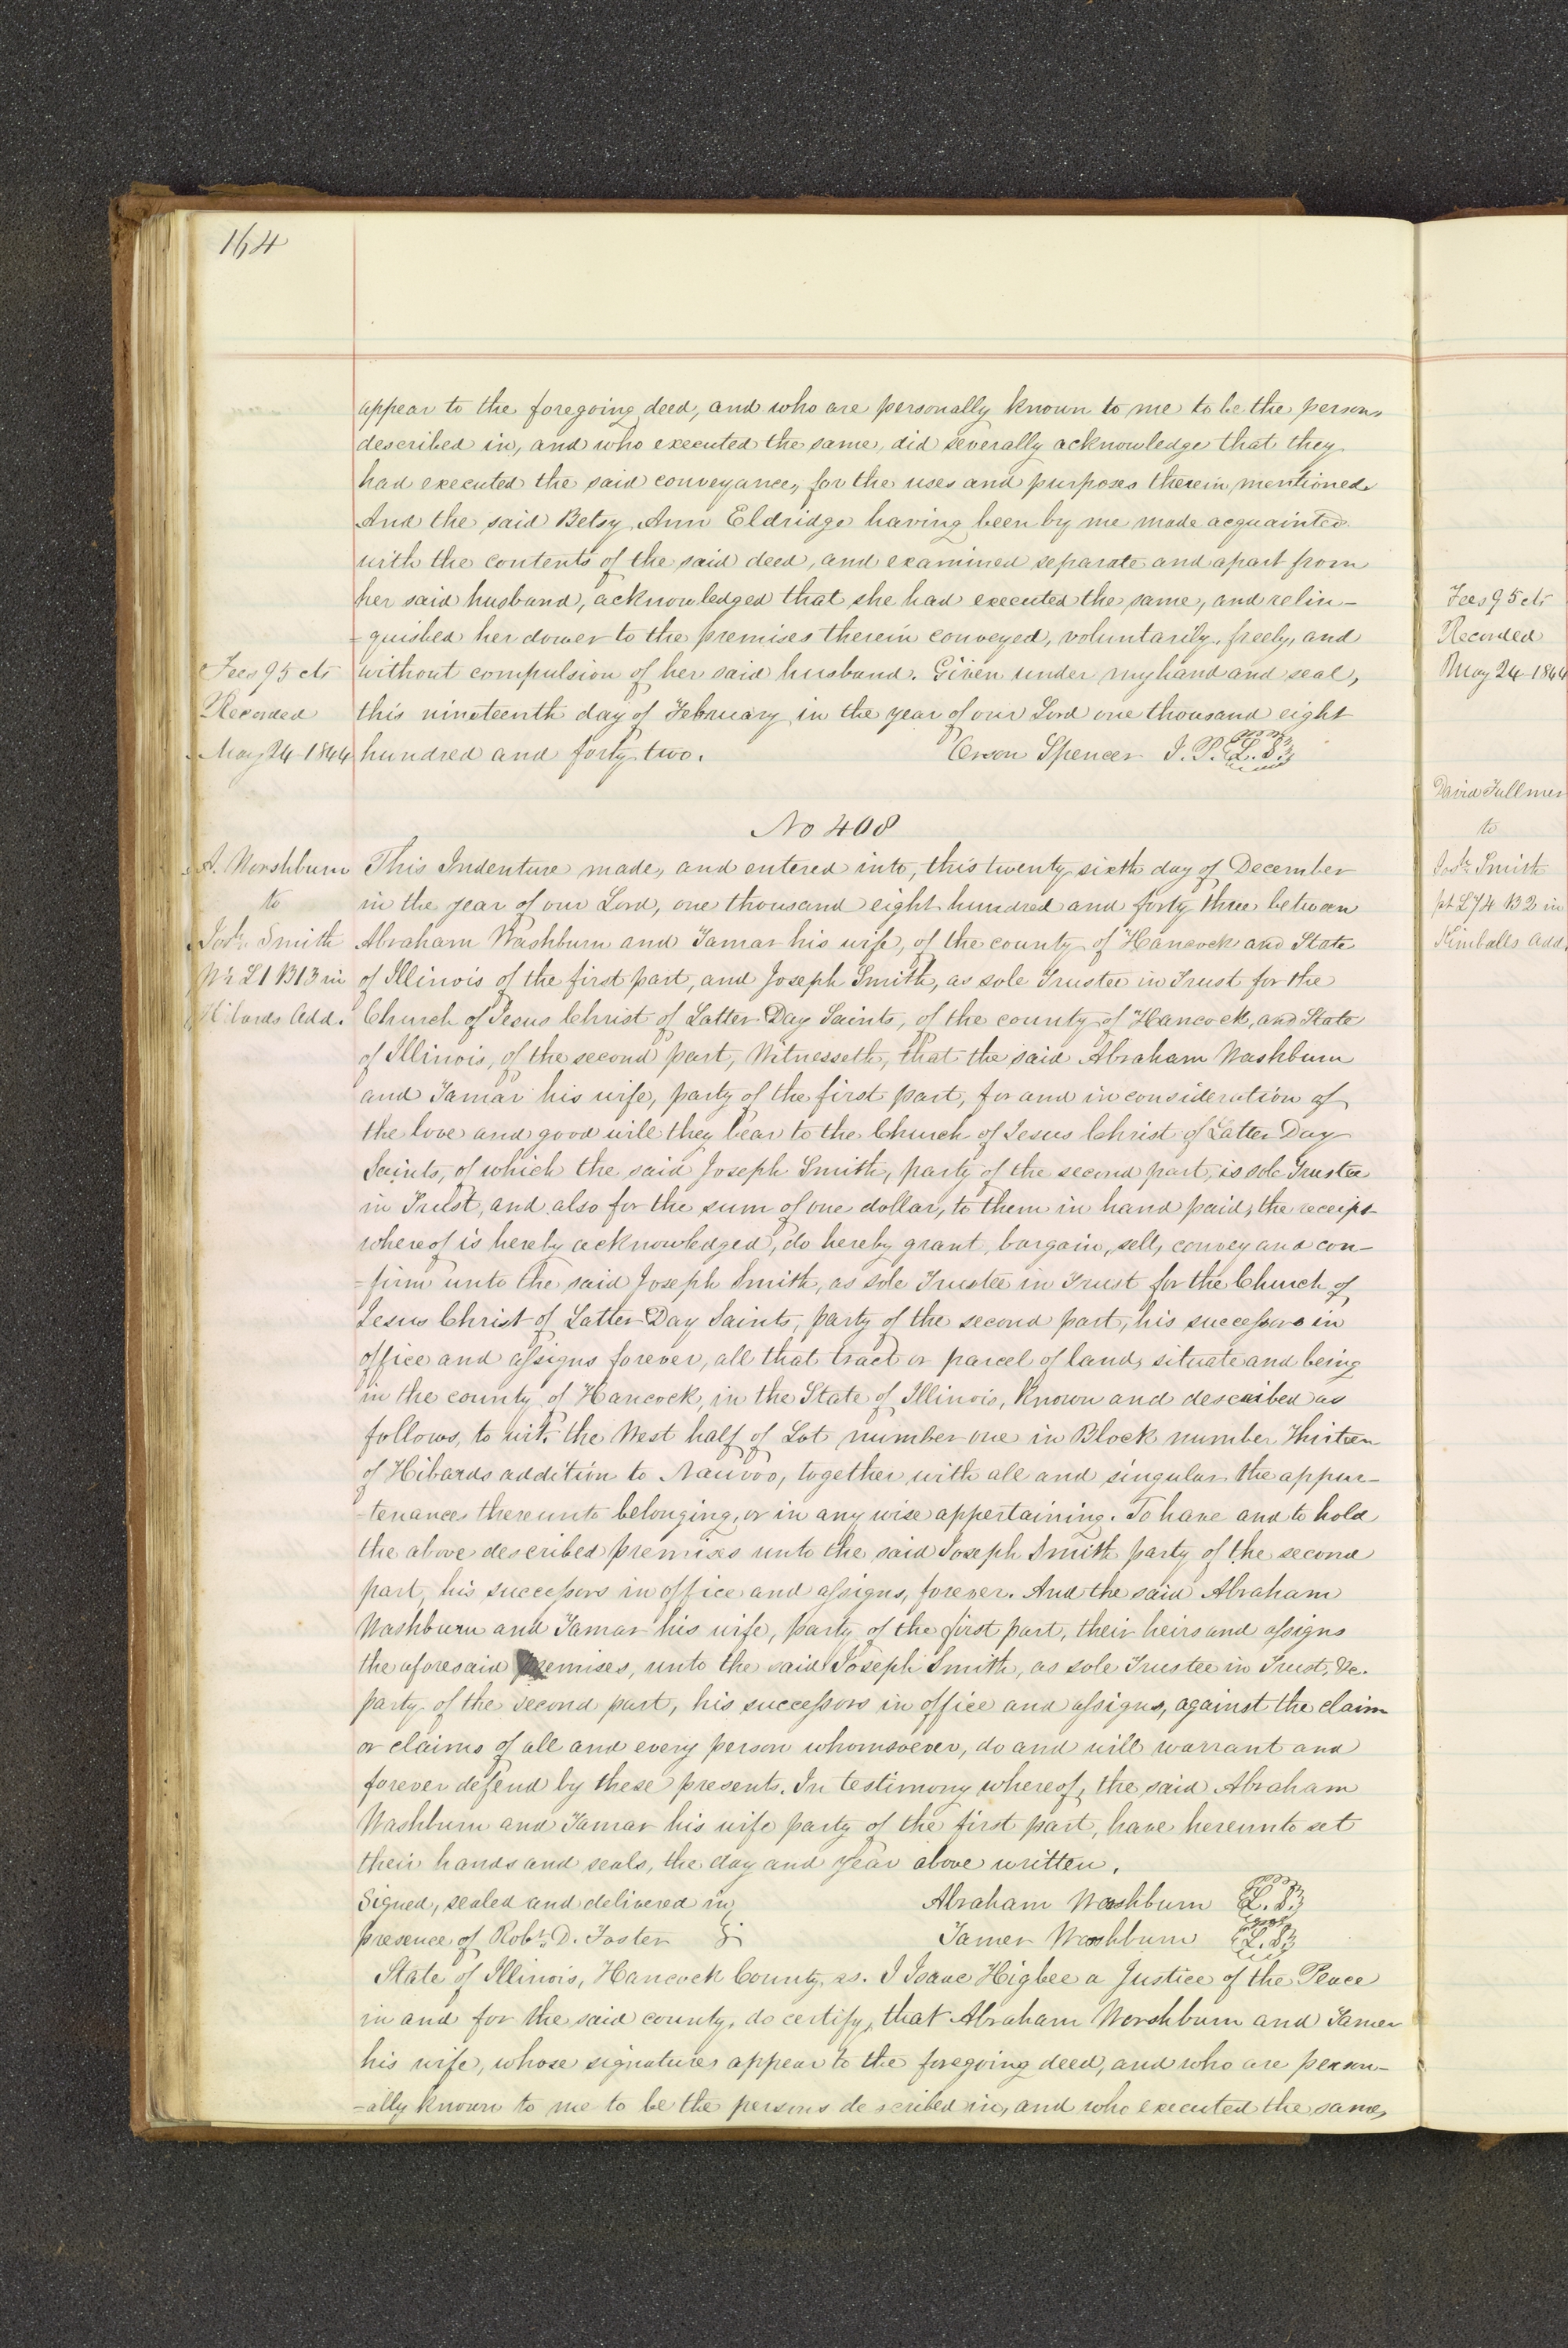 164
appear to the foregoing deed, and who are personally known to me to be the persons
described in, and who executed the same, did severally acknowledge that they
had executed the said conveyance, for the uses and purposes therein mentioned.
And the said Betsy Ann Eldridge having been by me made acquainted
with the contents of the said deed, and examined separate and apart from
her said husband, acknowledged that she had executed the same, and relin-
=quished her dower to the premises therein conveyed, voluntarily, freely, and
Fees 95 cts
without compulsion of her said husband. Given under my hand and seal,
Recorded
this nineteenth day of February in the year of our Lord one thousand eight
May 24 1844
hundred and forty two. Orson Spencer J. P. L. S.
No 408
A. Worshburn
to
Josh. Smith
W½ L1 B13 in
Hibards Add.
This Indenture made, and entered into, this twenty sixth day of December
in the year of our Lord, one thousand eight hundred and forty three between
Abraham Washburn and Tamar his wife, of the county of Hancock and State
of Illinois of the first part, and Joseph Smith, as sole Trustee in Trust for the
Church of Jesus Christ of Latter Day Saints, of the county of Hancock, and State
of Illinois, of the second part, Witnesseth, that the said Abraham Washburn
and Tamar his wife, party of the first part, for and in consideration of
the love and good will they bear to the Church of Jesus Christ of Latter Day
Saints, of which the said Joseph Smith, party of the second part, is sole Trustee
in Trust, and also for the sum of one dollar, to them in hand paid, the receipt
whereof is hereby acknowledged, do hereby grant, bargain, sell, convey and con-
=firm unto the said Joseph Smith, as sole Trustee in Trust for the Church of
Jesus Christ of Latter Day Saints, party of the second part, his successors in
office and assigns forever, all that tract or parcel of land, situate and being
in the county of Hancock, in the State of Illinois, known and described as
follows, to wit, the West half of Lot number one in Block number Thirteen
of Hibards addition to Nauvoo, together with all and singular the appur-
-tenances thereunto belonging, or in any wise appertaining. To have and to hold
the above described premises unto the said Joseph Smith party of the second
part, his successors in office and assigns, forever. And the said Abraham
Washburn and Tamar his wife, party of the first part, their heirs and assigns
the aforesaid premises, unto the said Joseph Smith, as sole Trustee in Trust, &c.
party of the second part, his successors in office and assigns, against the claim
or claims of all and every person whomsoever, do and will warrant and
forever defend by these presents. In testimony whereof, the said Abraham
Washburn and Tamar his wife party of the first part, have hereunto set
their hands and seals, the day and year above written.
Signed, sealed and delivered in Abraham Washburn L. S.
presence of Robt. D. Foster Tamer Washburn L. S.
State of Illinois, Hancock County, ss. I Isaac Higbee a Justice of the Peace
in and for the said county, do certify, that Abraham Worshburn and Tamer
his wife, whose signatures appear to the foregoing deed, and who are person-
=ally known to me to be the persons described in, and who executed the same,
Fees 95 cts
Recorded
May 24 1844
David Fullmer
to
Josh. Smith
pt L74 B2 in
Kimballs Add.